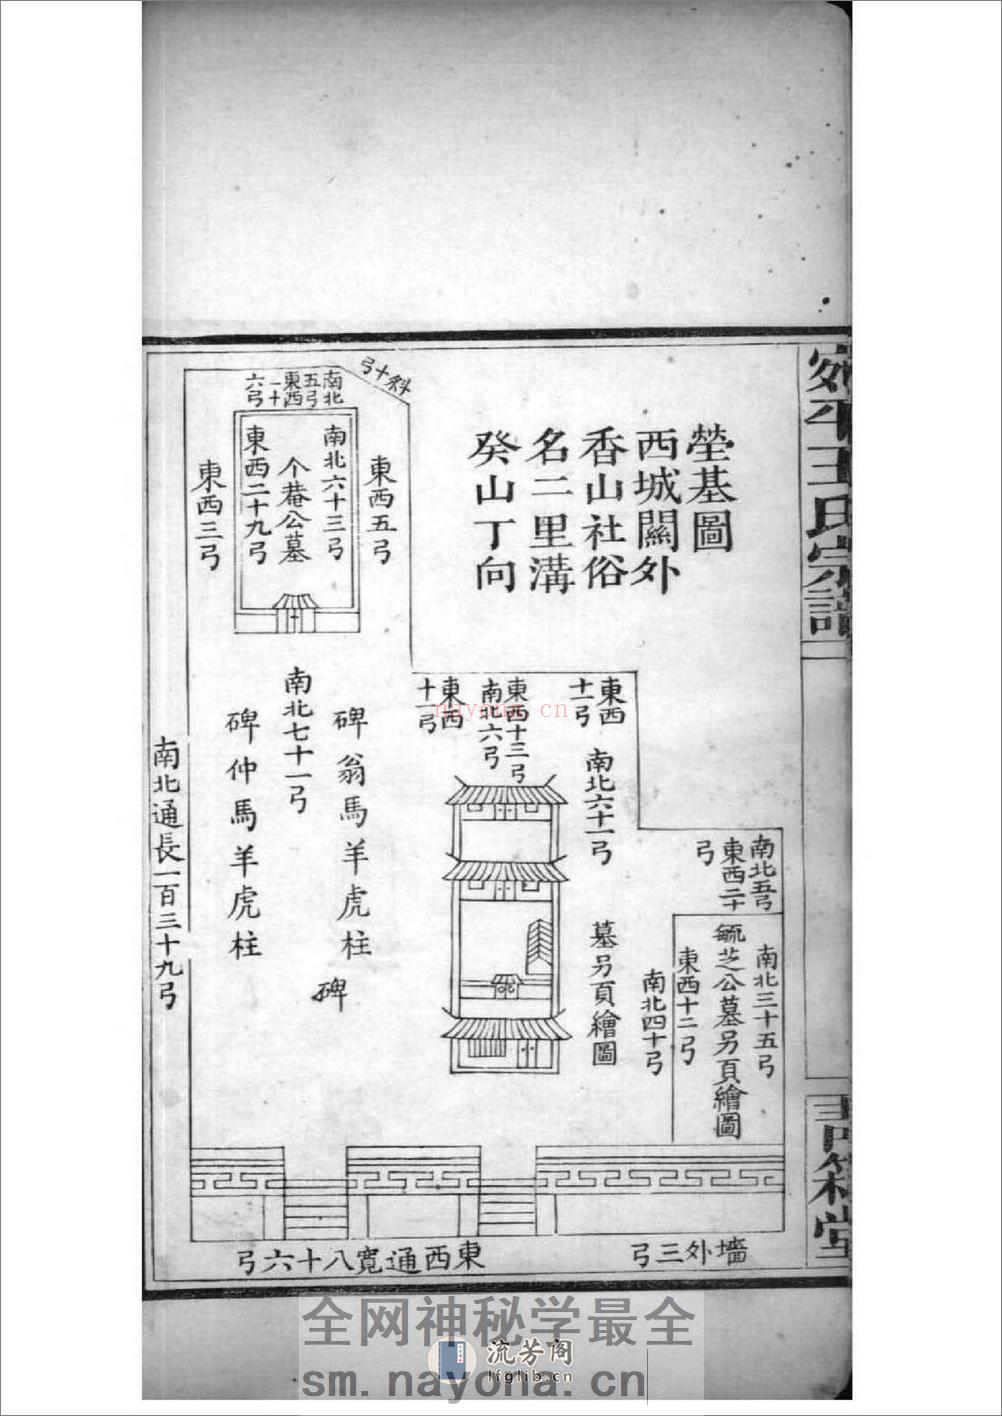 宛平王氏宗譜
一
青箱堂
塋基圖
西城關外
香山社俗
名二里溝
癸山丁向
斜十弓
南北
五弓
東西
十一
六弓
東西五弓
南北六十三弓
个菴公墓
東西二十九弓
東西三弓
東西
十一弓
東西十三弓
南北六弓
東西
十一弓
南北六十一弓
墓另頁繪圖
南北五弓
東西二十
弓
南北三十五弓
毓芝公墓另頁繪圖
東西十二弓
南北四十弓
碑翁馬羊虎柱
碑
南北七十一弓
碑仲馬羊虎柱
南北通長一百三十九弓
墻外三弓
東西通寬八十六弓
nayona.cn
全网神秘学最全
流芳阁
lfglib.cn
sm.nayona.cn